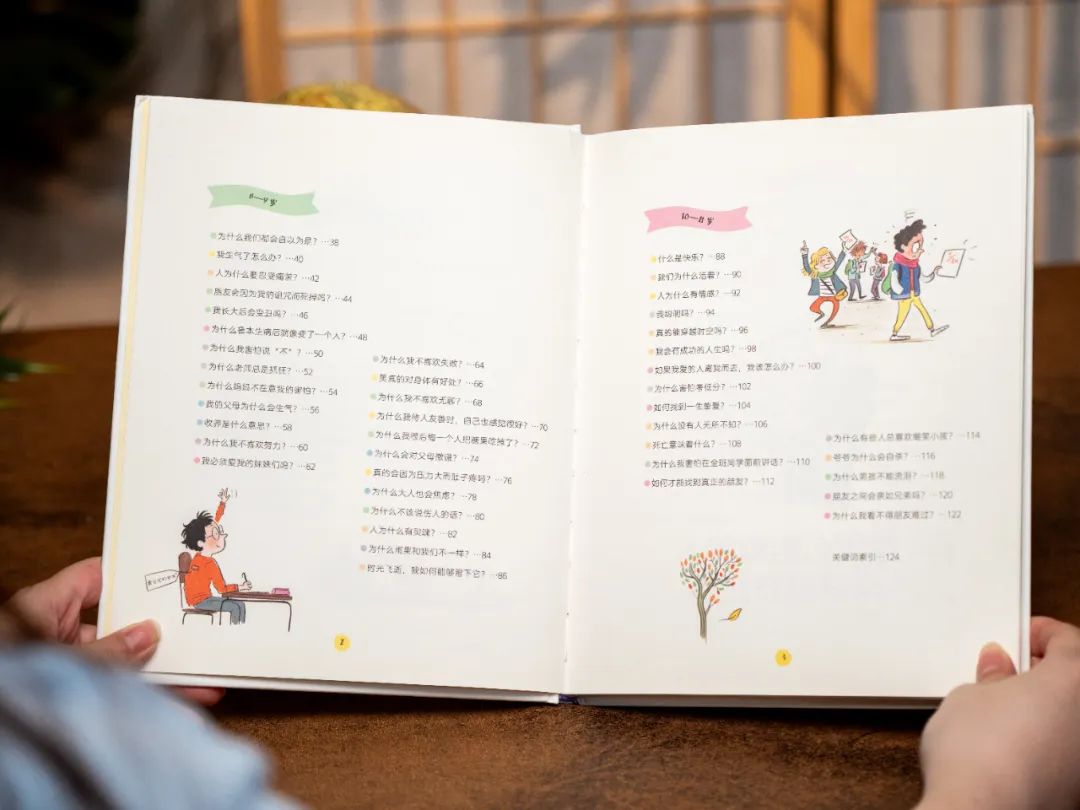 8—9 岁
为什么我们都会自以为是？ …38
我生气了怎么办？ …40
人为什么要忍受痛苦？ …42
朋友会因为我的诅咒而死掉吗？ …44
我长大后会变丑吗？ …46
为什么鲁本生病后就像变了一个人？ …48
为什么我害怕说“不”？ …50
为什么老师总是抓狂？ …52
为什么妈妈不在意我的害怕？ …54
我的父母为什么会生气？ …56
收养是什么意思？ …58
为什么我不喜欢努力？ …60
我必须爱我的妹妹们吗？ …62
为什么我不喜欢失败？ …64
笑真的对身体有好处？ …66
为什么我不喜欢无聊？ …68
为什么我待人友善时，自己也感觉很好？ …70
为什么我很后悔一个人把糖果吃掉了？ …72
为什么会对父母撒谎？ …74
真的会因为压力大而肚子疼吗？ …76
为什么大人也会焦虑？ …78
为什么不该说伤人的话？ …80
人为什么有灵魂？ …82
为什么雨果和我们不一样？ …84
时光飞逝，我如何能够留下它？ …86
2
10—11 岁
什么是快乐？ …88
我们为什么活着？ …90
人为什么有情感？ …92
我聪明吗？ …94
真的能穿越时空吗？ …96
我会有成功的人生吗？ …98
如果我爱的人离我而去，我该怎么办？ …100
为什么害怕考低分？ …102
如何找到一生挚爱？ …104
为什么没有人无所不知？ …106
死亡意味着什么？ …108
为什么我害怕在全班同学面前讲话？ …110
如何才能找到真正的朋友？ …112
为什么有些人总喜欢嘲笑小孩？ …114
爷爷为什么会自杀？ …116
为什么男孩不能流泪？ …118
朋友之间会亲如兄弟吗？ …120
为什么我看不得朋友难过？ …122
关键词索引…124
3